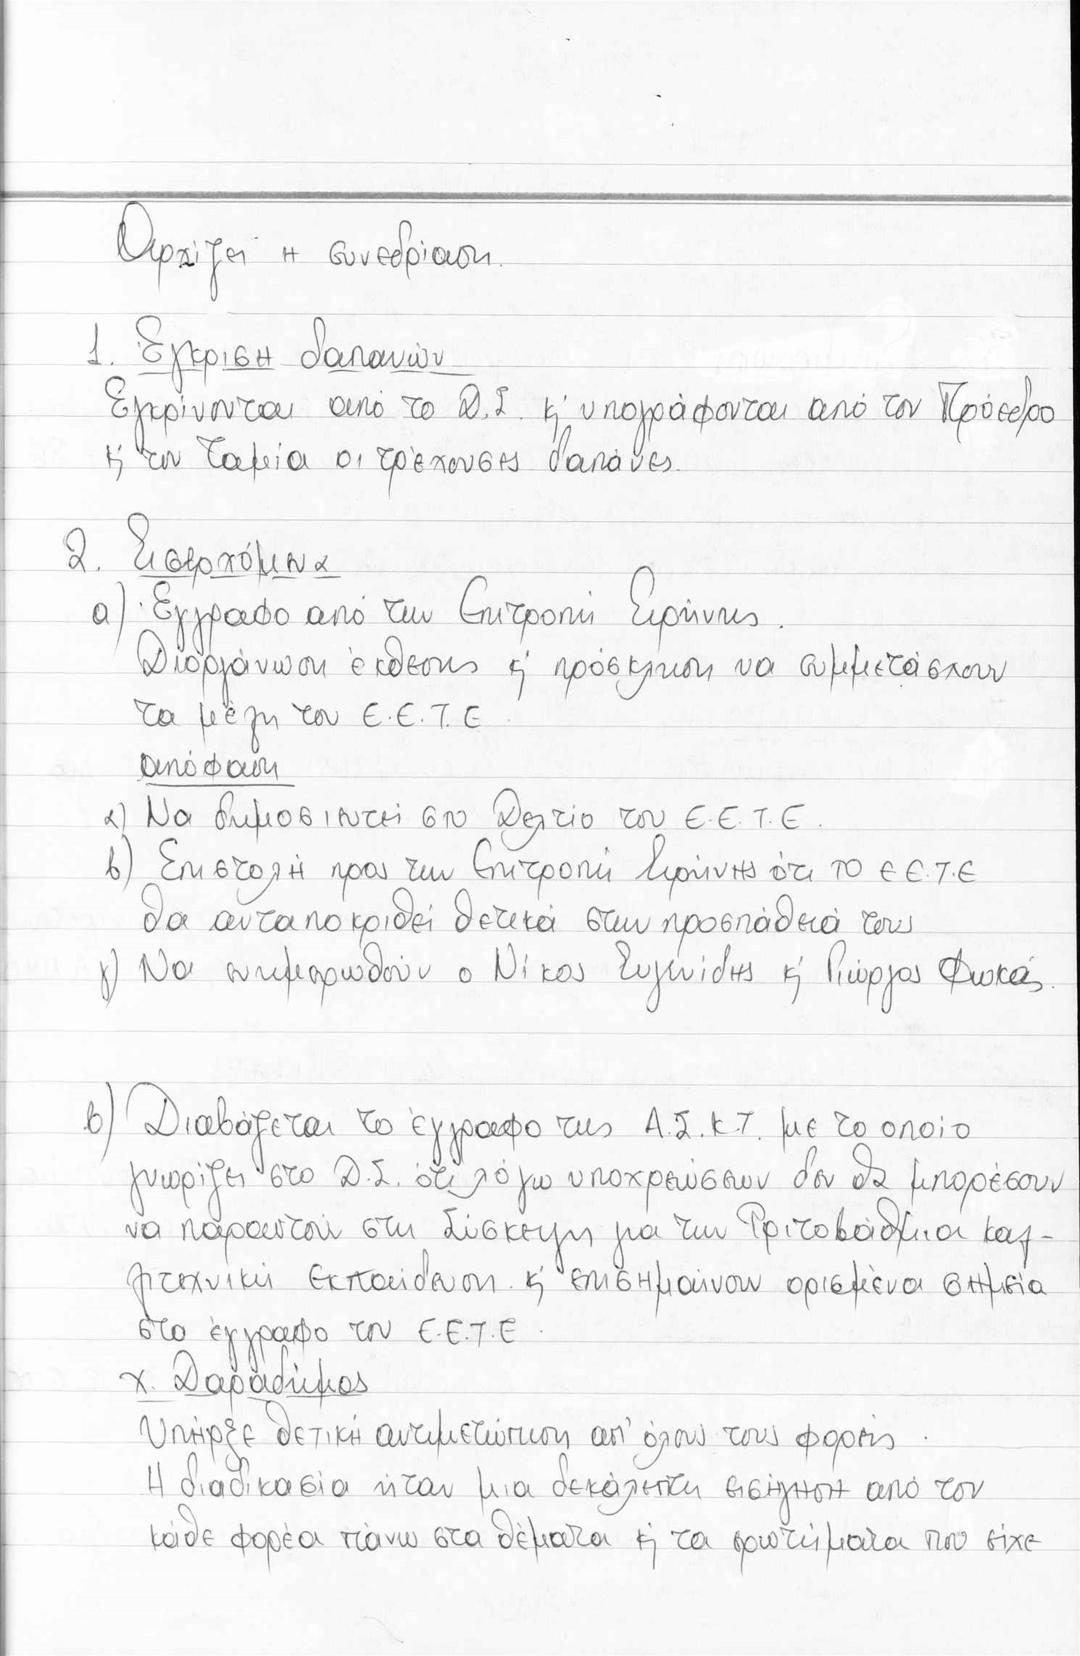 Αρχίζει η συνεδρίαση.
1. Έγκριση δαπανών
Εγκρίνονται από το Δ.Σ. κ' υπογράφονται από τον Πρόεδρο
κ' τον Ταμία οι τρέχουσες δαπάνες.
2. Εισερχόμενα
α) Έγγραφο από την Επιτροπή Ειρήνης.
Διοργάνωση έκθεσης κ' πρόσκληση να συμμετάσχουν
τα μέλη του Ε.Ε.Τ.Ε
απόφαση
α) Να δημοσιευτεί στο Δελτίο του Ε.Ε.Τ.Ε.
β) Επιστολή προς την Επιτροπή Ειρήνης ότι το ΕΕ.Τ.Ε
θα ανταποκριθεί θετικά στην προσπάθειά τους
γ) Να ενημερωθούν ο Νίκος Ευγενίδης κ' Γιώργος Φωκάς.
β) Διαβάζεται το έγγραφο της Α.Σ.Κ.Τ. με το οποίο
γνωρίζει στο Δ.Σ. ότι λόγω υποχρεώσεων δεν θα μπορέσουν
να παραστούν στη Σύσκεψη για την Τριτοβάθμια καλ-
λιτεχνική εκπαίδευση κ' επισημαίνουν ορισμένα σημεία
στο έγγραφο του Ε.Ε.Τ.Ε.
χ. Δαραδήμος
Υπήρξε θετική αντιμετώπιση απ' όλους τους φορείς.
Η διαδικασία ήταν μια δεκάλεπτη εισήγηση από τον
κάθε φορέα πάνω στα θέματα κ' τα ερωτήματα που είχε